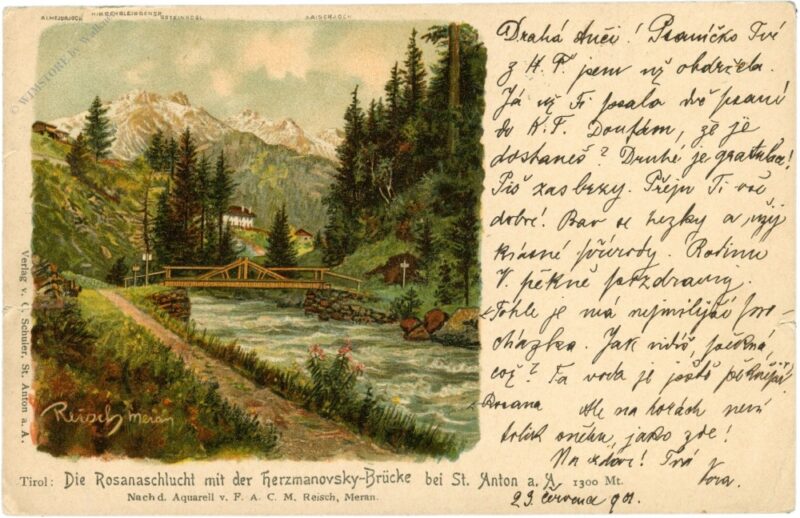 ALMEJURJOCH HIRSCHPLEISSKOPF
STEINKOGL KAISERJOCH
© WIMSTORE by
Verlag v. G. Schuler, St. Anton a. A.
Reisch Meran
Tirol: Die Rosanaschlucht mit der Herzmanovsky-Brücke bei St. Anton a. A. 1300 Mt.
Nach d. Aquarell v. F. A. C. M. Reisch, Meran.
Drahá Anči! Psaníčko Tvé
z H. F. jsem už obdržela.
Já už Ti psala dvě psaní
do H. F. Doufám, že je
dostaneš? Druhé je gratulace!
Piš zas brzy. Přeju Ti vše
dobré! Bav se hezky a užij
krásné přírody. Rodinu
V. pěkně pozdravuj.
Tohle je má nejmilejší pro-
cházka. Jak vidíš, pěkná,
což? Ta voda je ještě pěknější!
Rosana Ale na horách není
tolik sněhu, jako zde!
Na zdar! Tvá
23. července 901.